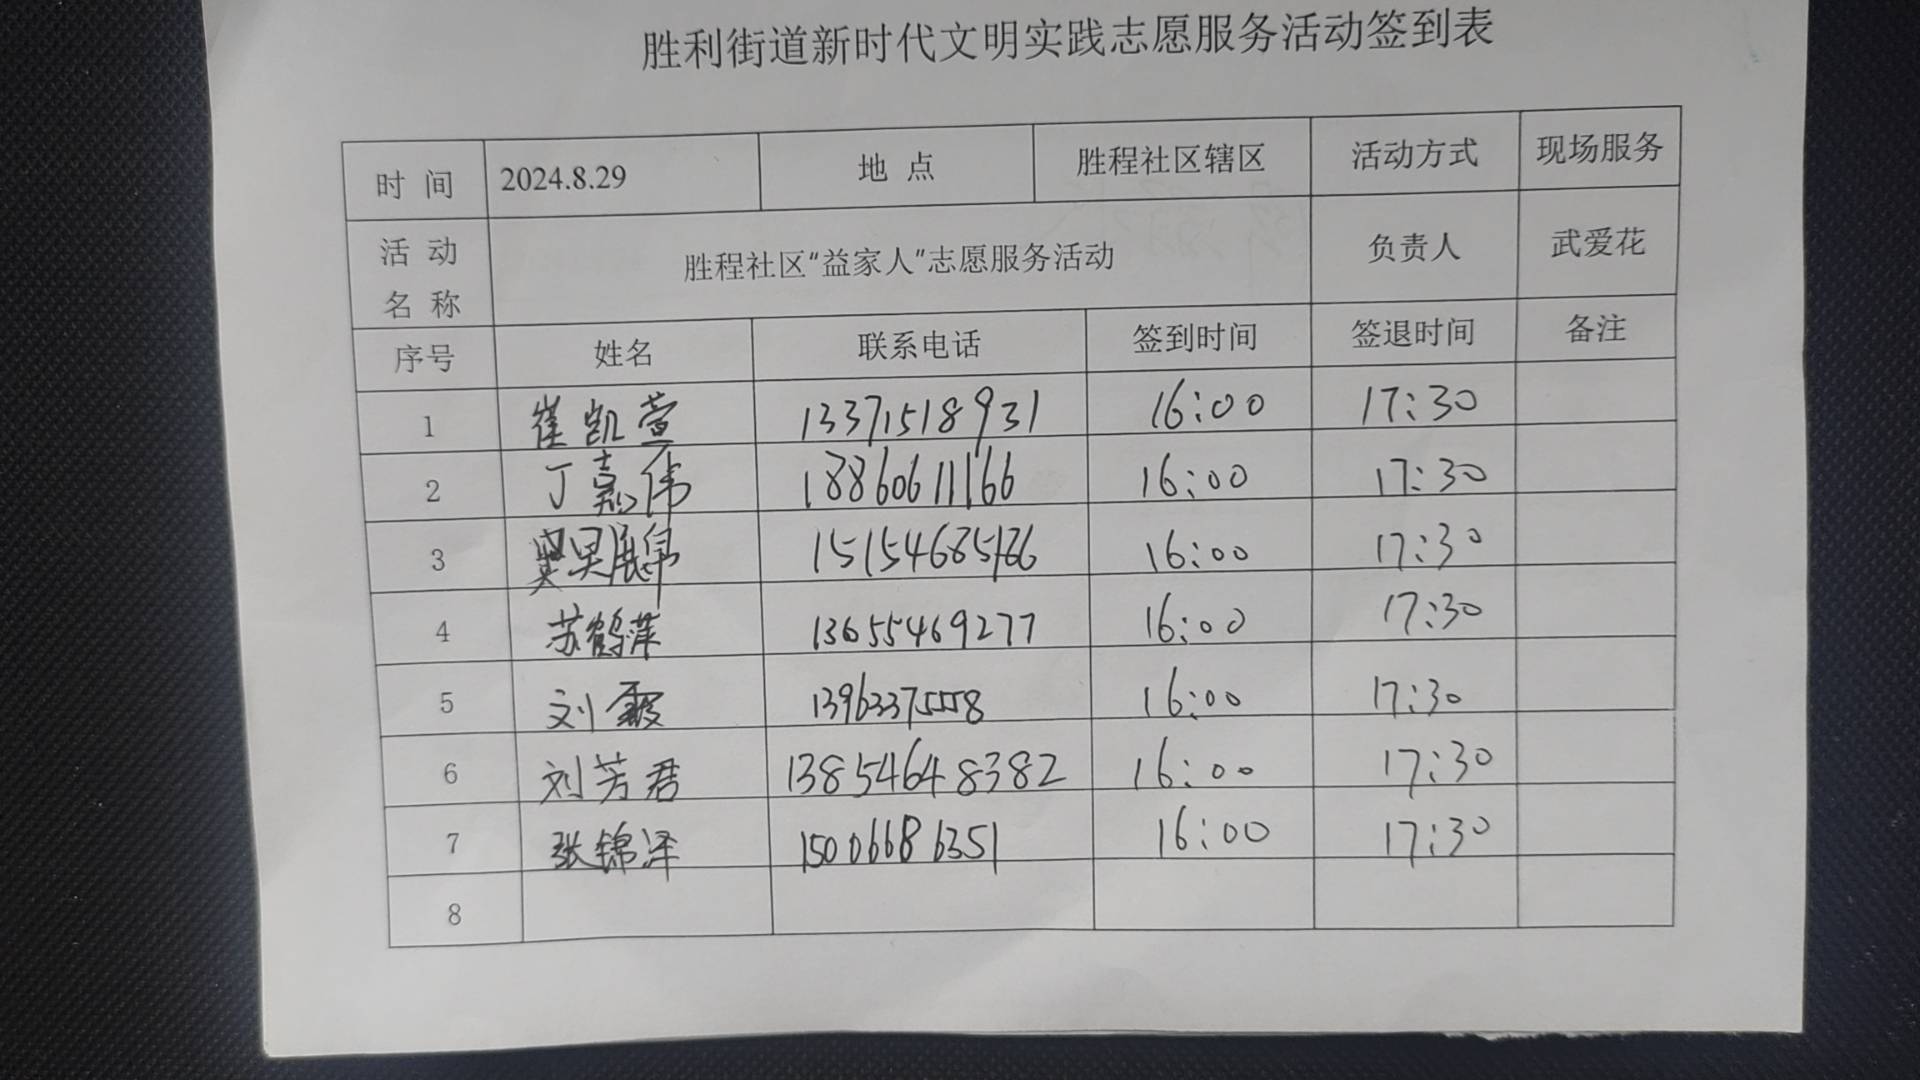 胜利街道新时代文明实践志愿服务活动签到表
时 间 2024.8.29 地 点 胜程社区辖区 活动方式 现场服务
活 动
名 称 胜程社区“益家人”志愿服务活动 负责人 武爱花
序号 姓名 联系电话 签到时间 签退时间 备注
1 崔凯萱 13371518931 16:00 17:30
2 丁嘉伟 18860611166 16:00 17:30
3 16:00 17:30
4 苏鹤萍 13655469277 16:00 17:30
5 刘霞 13963375558 16:00 17:30
6 刘芳君 13854648382 16:00 17:30
7 张锦泽 15006686351 16:00 17:30
8